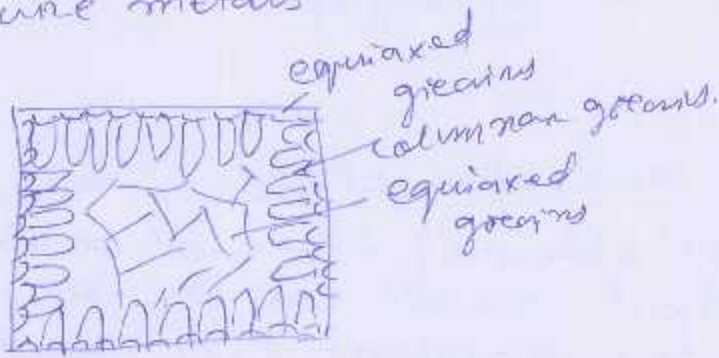 metals
equiaxed
grains
columnar grains.
equiaxed
grains